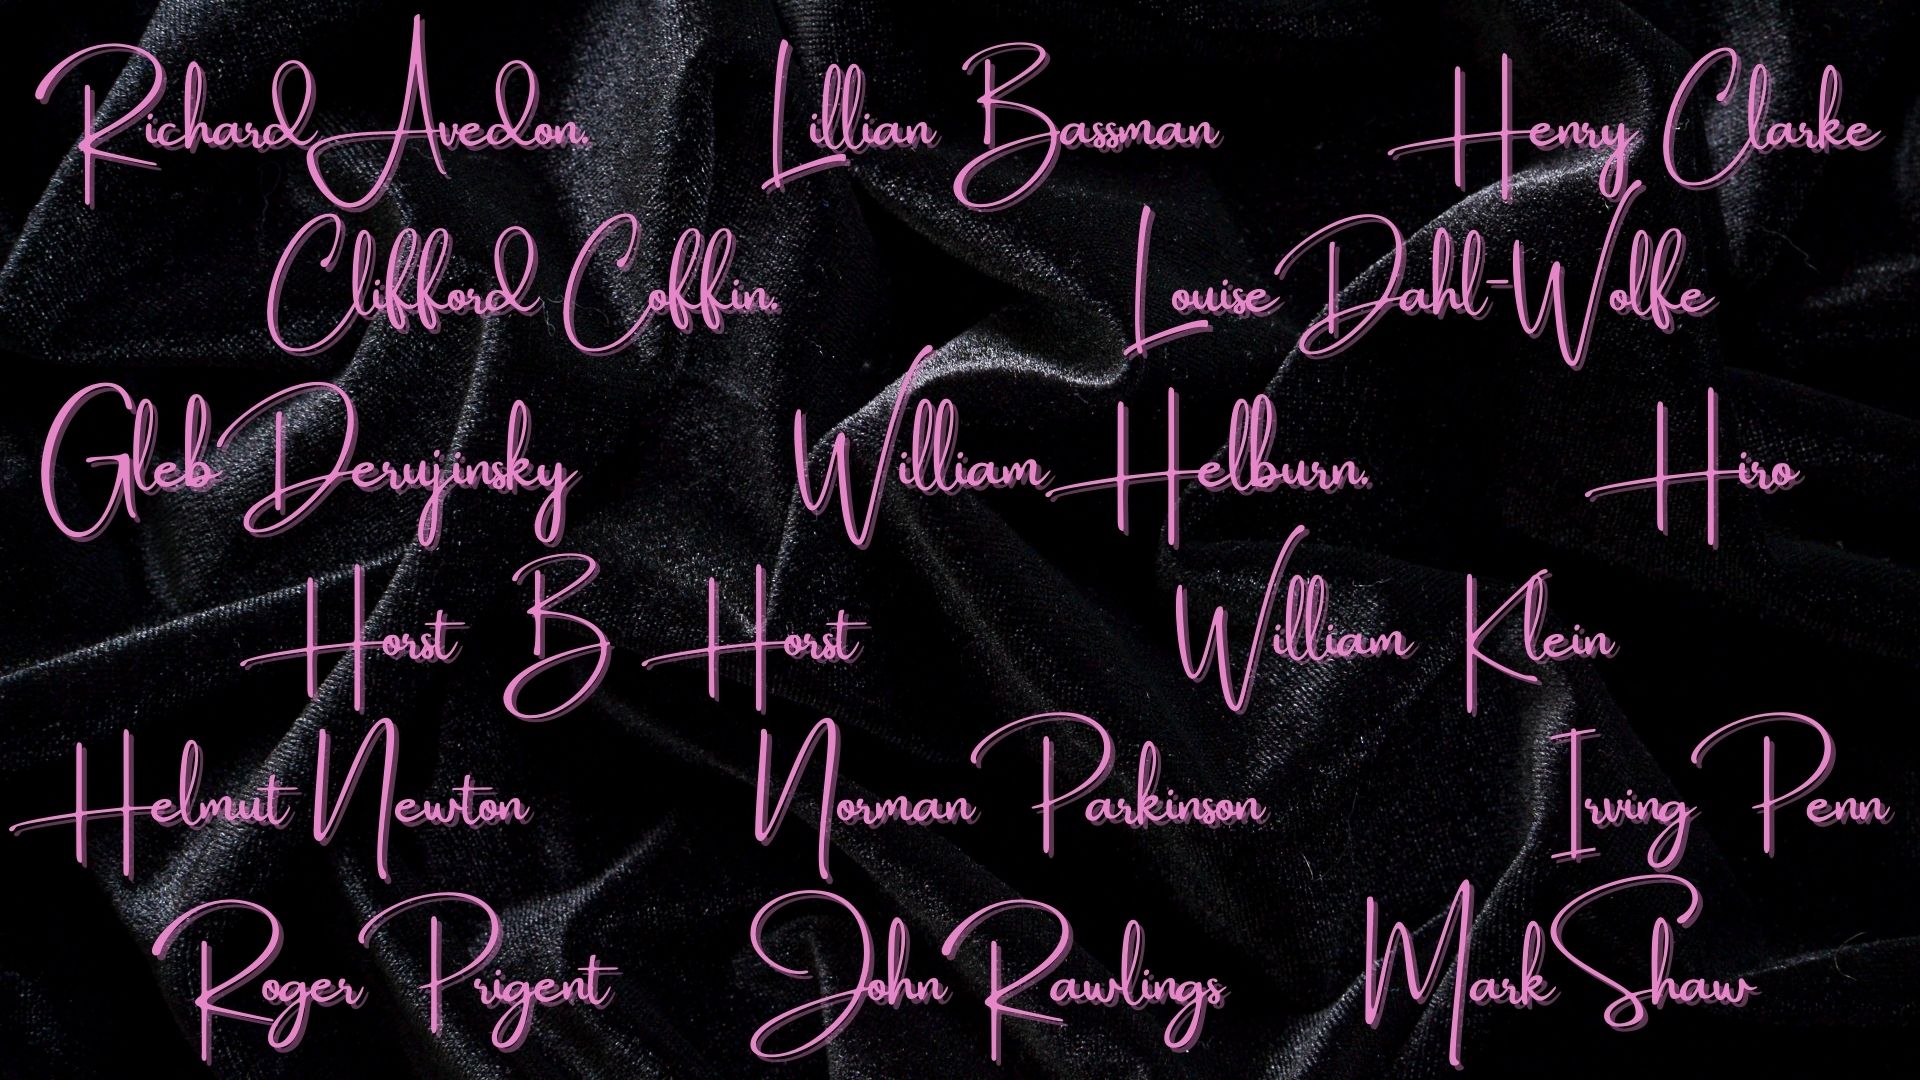 Richard Avedon. Lillian Bassman Henry Clarke
Clifford Coffin. Louise Dahl-Wolfe
Gleb Derujinsky William Helburn. Hiro
Horst B Horst William Klein
Helmut Newton Norman Parkinson Irving Penn
Roger Prigent John Rawlings Mark Shaw